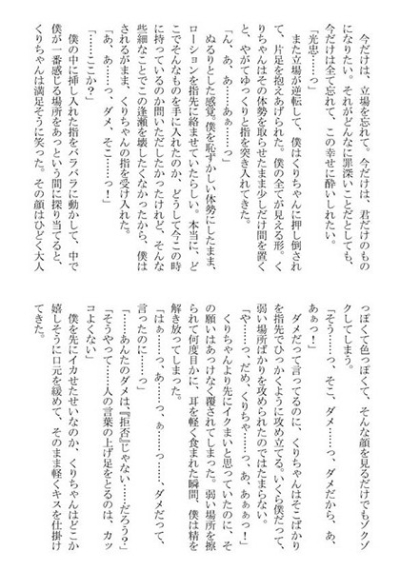 今だけは、立場を忘れて。今だけは、君だけのもの
になりたい。それがどんなに罪深いことだとしても、
今だけは全て忘れて、この幸せに酔いしれたい。
「光忠……っ」
また立場が逆転して、僕はくりちゃんに押し倒され
て、片足を抱えあげられた。僕の全てが見える形。く
りちゃんはその体勢を取らせたまま少しだけ間を置く
と、やがてゆっくりと指を突き入れてきた。
「ん、あ、あ……あぁ……っ」
ぬるりとした感覚。僕を恥ずかしい体勢にしたまま、
ローションを指先に絡ませていたらしい。本当に、ど
こでそんなものを手に入れたのか、どうして今この時
に持っているのか問いただしたかったけれど、そんな
些細なことでこの逢瀬を壊したくなかったから、僕は
されるがまま、くりちゃんの指を受け入れた。
「あ、あ……っ、ダメ、そこ……っ！」
「……ここか？」
僕の中に挿し入れた指をバラバラに動かして、中で
僕が一番感じる場所をあっという間に探り当てると、
くりちゃんは満足そうに笑った。その顔はひどく大人
っぽくて色っぽくて、そんな顔を見るだけでもゾクゾ
クしてしまう。
「そう……っ、そこ、ダメ……っ、ダメだから、あ、
あぁっ！」
ダメだって言ってるのに、くりちゃんはそこばかり
を指先でひっかくように攻め立てる。いくら僕だって、
弱い場所ばかりを攻められたのではたまらない。
「や……っ、だめ、くりちゃ……っ、あ、あぁぁっ！」
くりちゃんより先にイクまいと思っていたのに、そ
の願いはあっけなく覆されてしまった。弱い場所を擦
られて何度目かに、耳を軽く食まれた瞬間、僕は精を
解き放ってしまった。
「はぁ……っ、あ……っ、ぁ……っ……、ダメだって、
言ったのに……っ」
「……あんたのダメは『拒否』じゃない……だろう？」
「そうやって……人の言葉の上げ足をとるのは、カッ
コよくない」
僕を先にイカせたせいなのか、くりちゃんはどこか
嬉しそうに口元を緩めて、そのまま軽くキスを仕掛け
てきた。